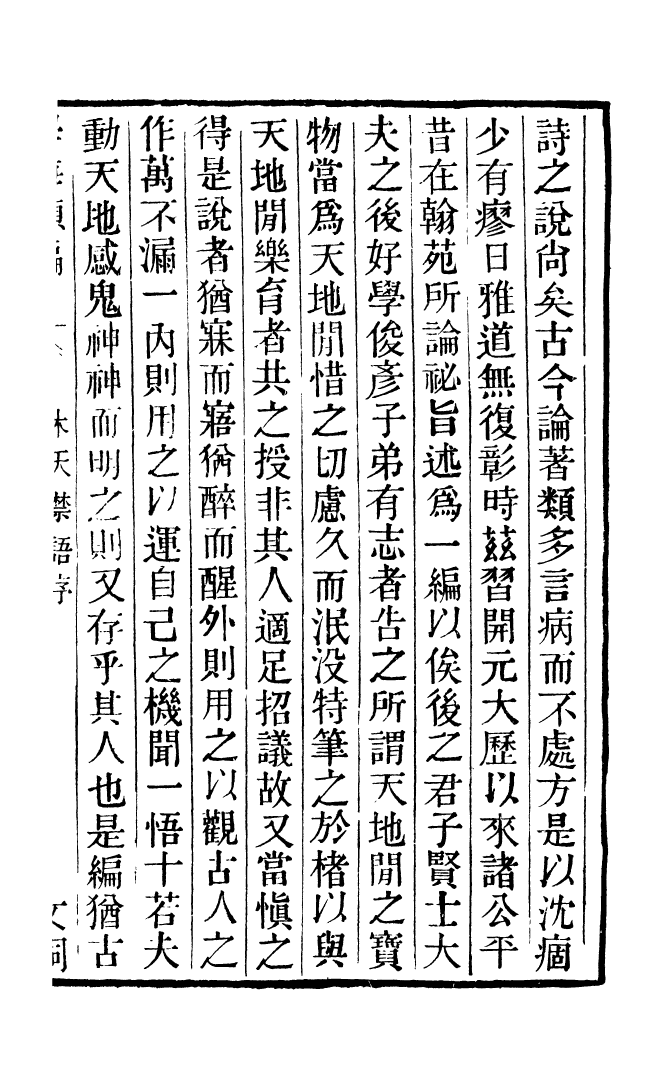 詩之說尙矣古今論著類多言病而不處方是以沈痼
少有瘳日雅道無復彰時茲習開元大歷以來諸公平
昔在翰苑所論祕旨述爲一編以俟後之君子賢士大
夫之後好學俊彥子弟有志者告之所謂天地閒之寶
物當爲天地閒惜之切慮久而泯没特筆之於楮以與
天地閒樂育者共之授非其人適足招議故又當愼之
得是說者猶寐而寤猶醉而醒外則用之以觀古人之
作萬不漏一內則用之以運自己之機聞一悟十若夫
動天地感鬼神神而明之則又存乎其人也是編猶古
學海類編 木天禁語序 文詞